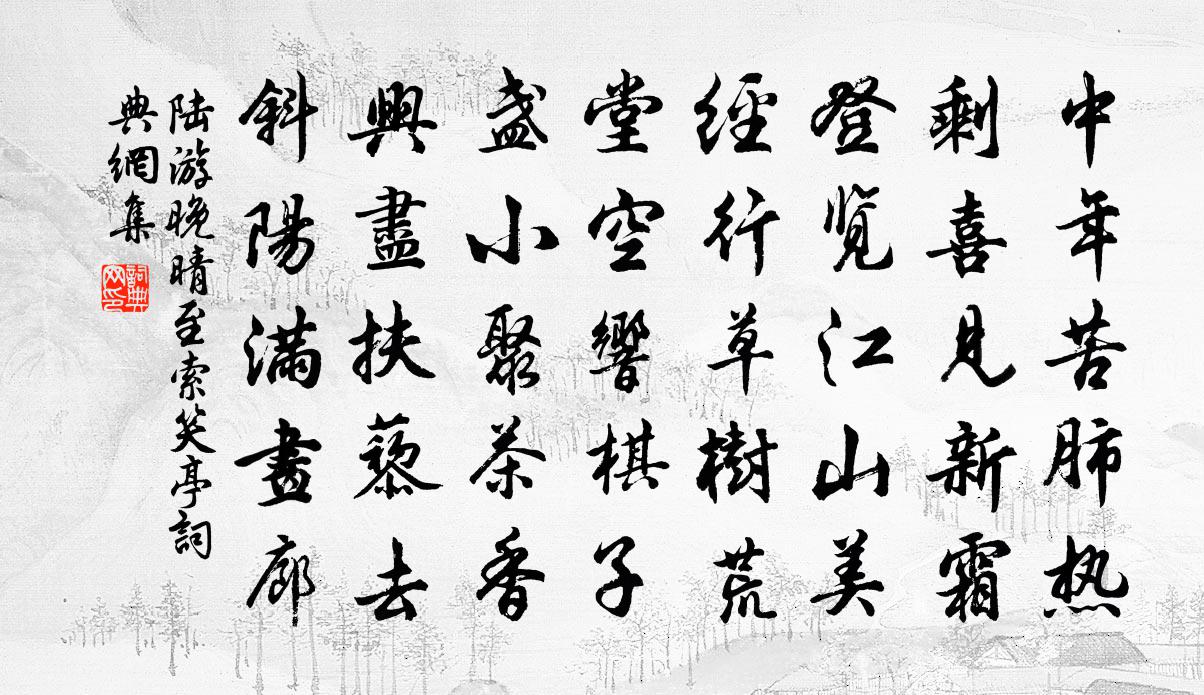 中年苦肺热
剩喜見新霜
登览江山美
經行草樹荒
堂空響棋子
盏小聚茶香
興盡扶藜去
斜陽满畫廊
陆游晚晴至索笑亭詞
典網集
詞典网印